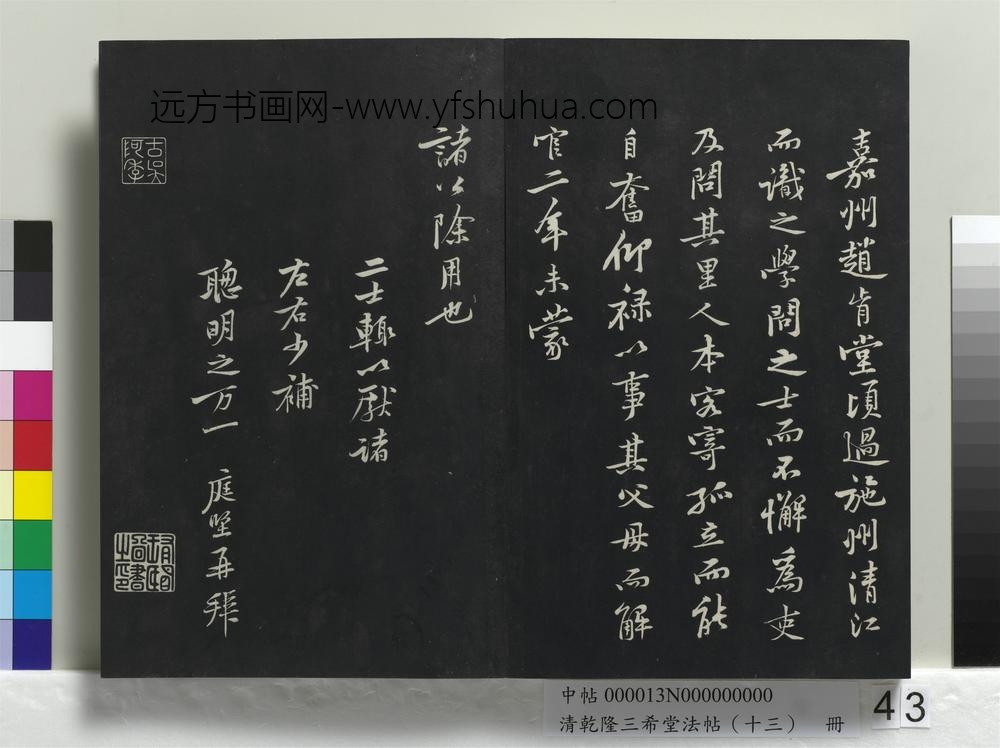 远方书画网-www.yfshuhua.com
嘉州趙肯堂頃過施州清江
而識之學問之士而不懈為吏
及問其里人本客寄孤立而能
自奮仰祿以事其父母而解
官二年未蒙
諸公除用也
二士輒以獻諸
左右少補
聰明之万一 庭堅再拜
中帖 000013N000000000
清乾隆三希堂法帖（十三） 冊
43